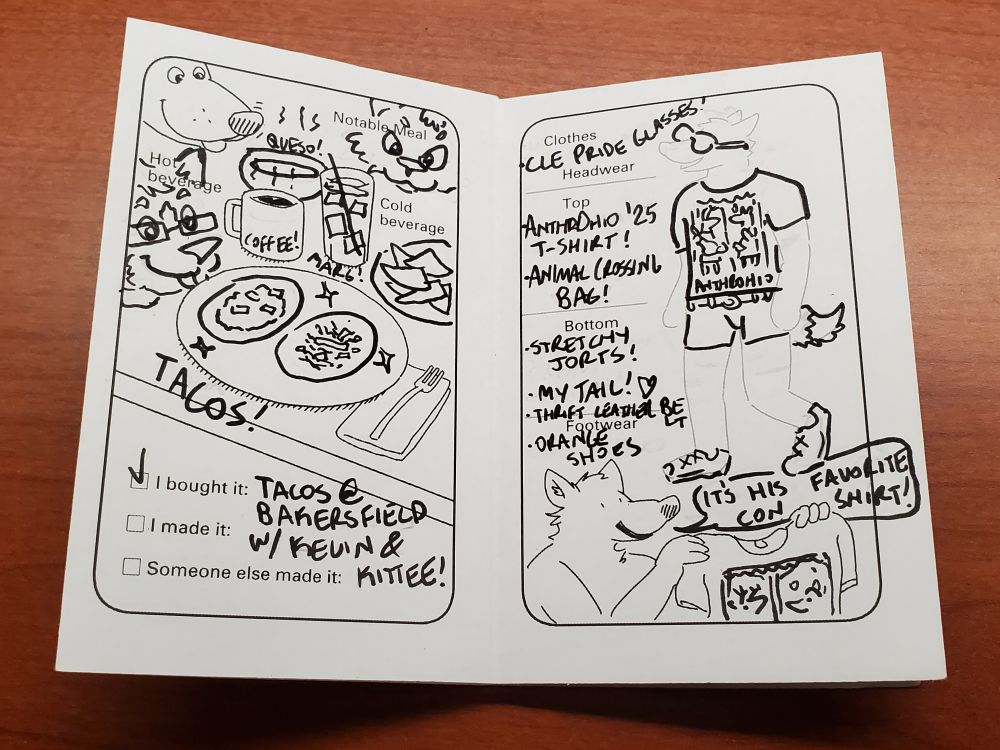 Notable Meal
QUESO!
Hot
beverage
Cold
beverage
COFFEE!
MARG!
TACOS!
I bought it: TACOS @
BAKERSFIELD
I made it:
W/ KEVIN &
Someone else made it: KITTEE!
Clothes
· CLE PRIDE GLASSES!
Headwear
Top
· ANTHROHIO '25
T-SHIRT!
· ANIMAL CROSSING
BAG!
ANTHROHIO
Bottom
· STRETCHY
JORTS!
· MY TAIL! ♡
· THRIFT LEATHER BE
LT
Footwear
· ORANGE
SHOES
IT'S HIS FAVORITE
CON SHIRT!